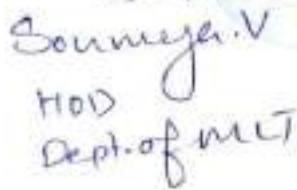 Soumya.V
HOD
Dept.of MLT